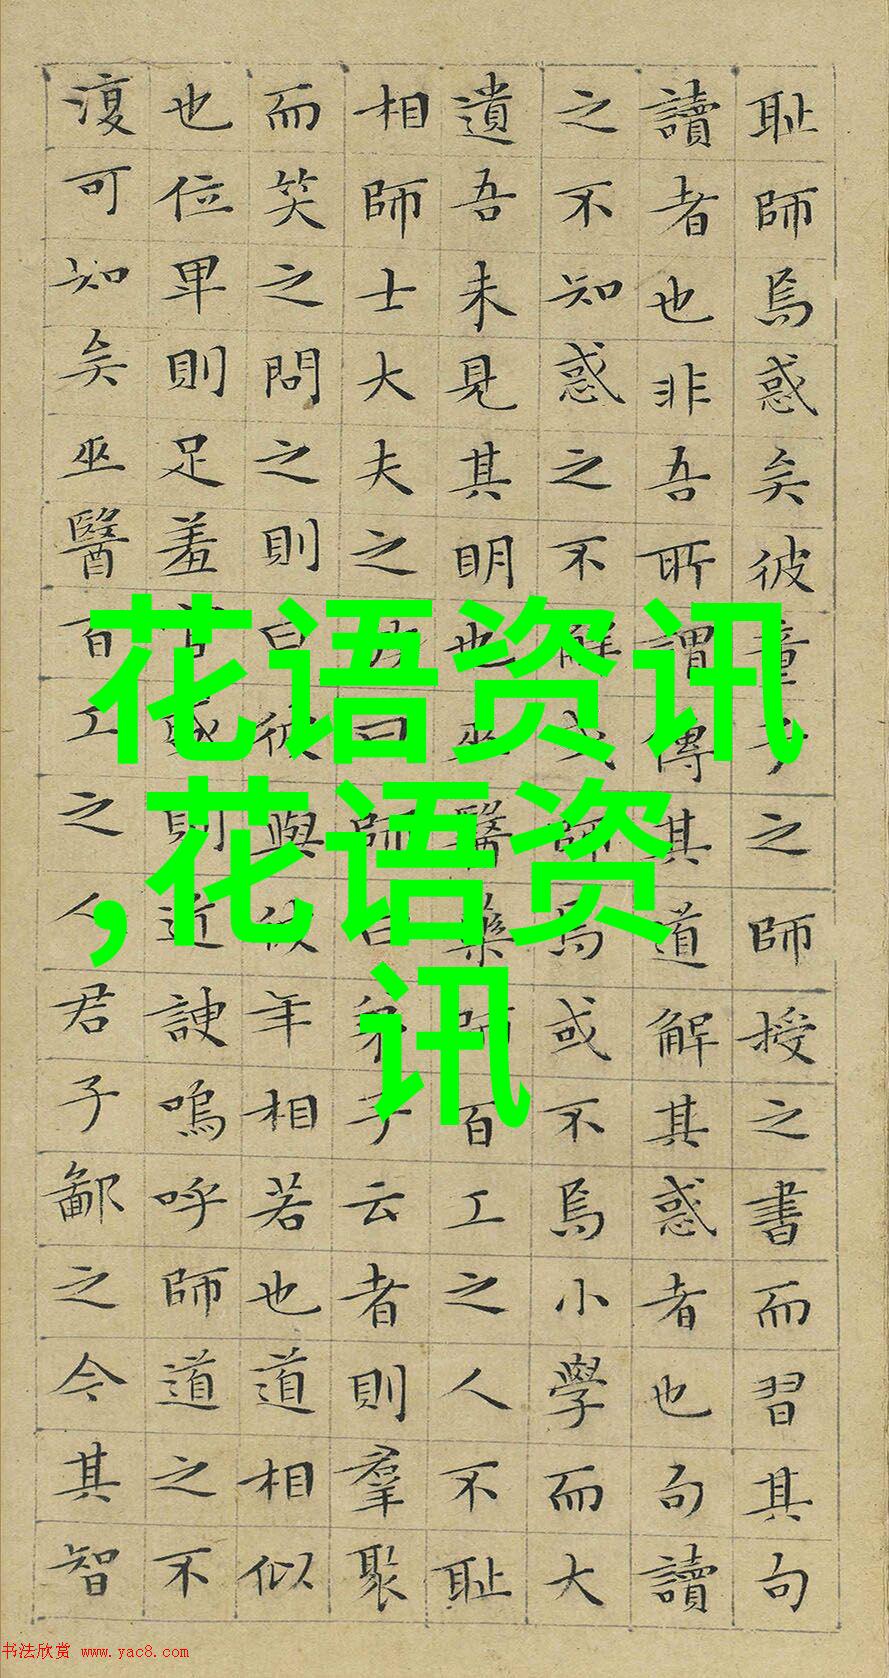 耻師焉惑矣彼童子之師授之書而習其句
讀者也非吾所謂傳其道解其惑者也句讀
之不知惑之不解或師焉或不焉小學而大
遺吾未見其明也巫醫藥師百工之人不耻
相師士大夫之曰師曰弟子云者則羣聚
而笑之問之則曰彼與彼年相若也道相似
也位卑則足羞官盛則近諛嗚呼師道之不
復可知矣巫醫百工之人君子鄙之今其智
花语资讯
,花语资
讯
书法欣赏 www.yac8.com